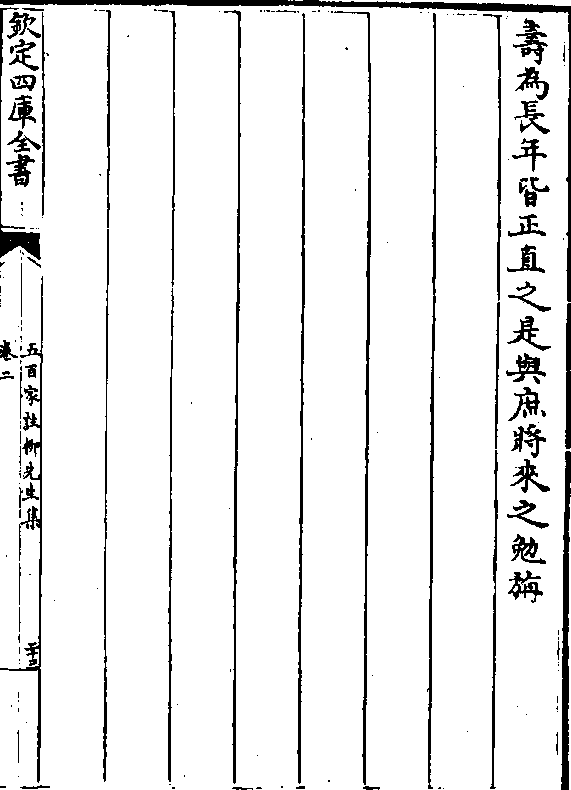 壽為長年皆正直之是與庶將來之勉旃
欽定四庫全書
五百家註柳先生集
卷二